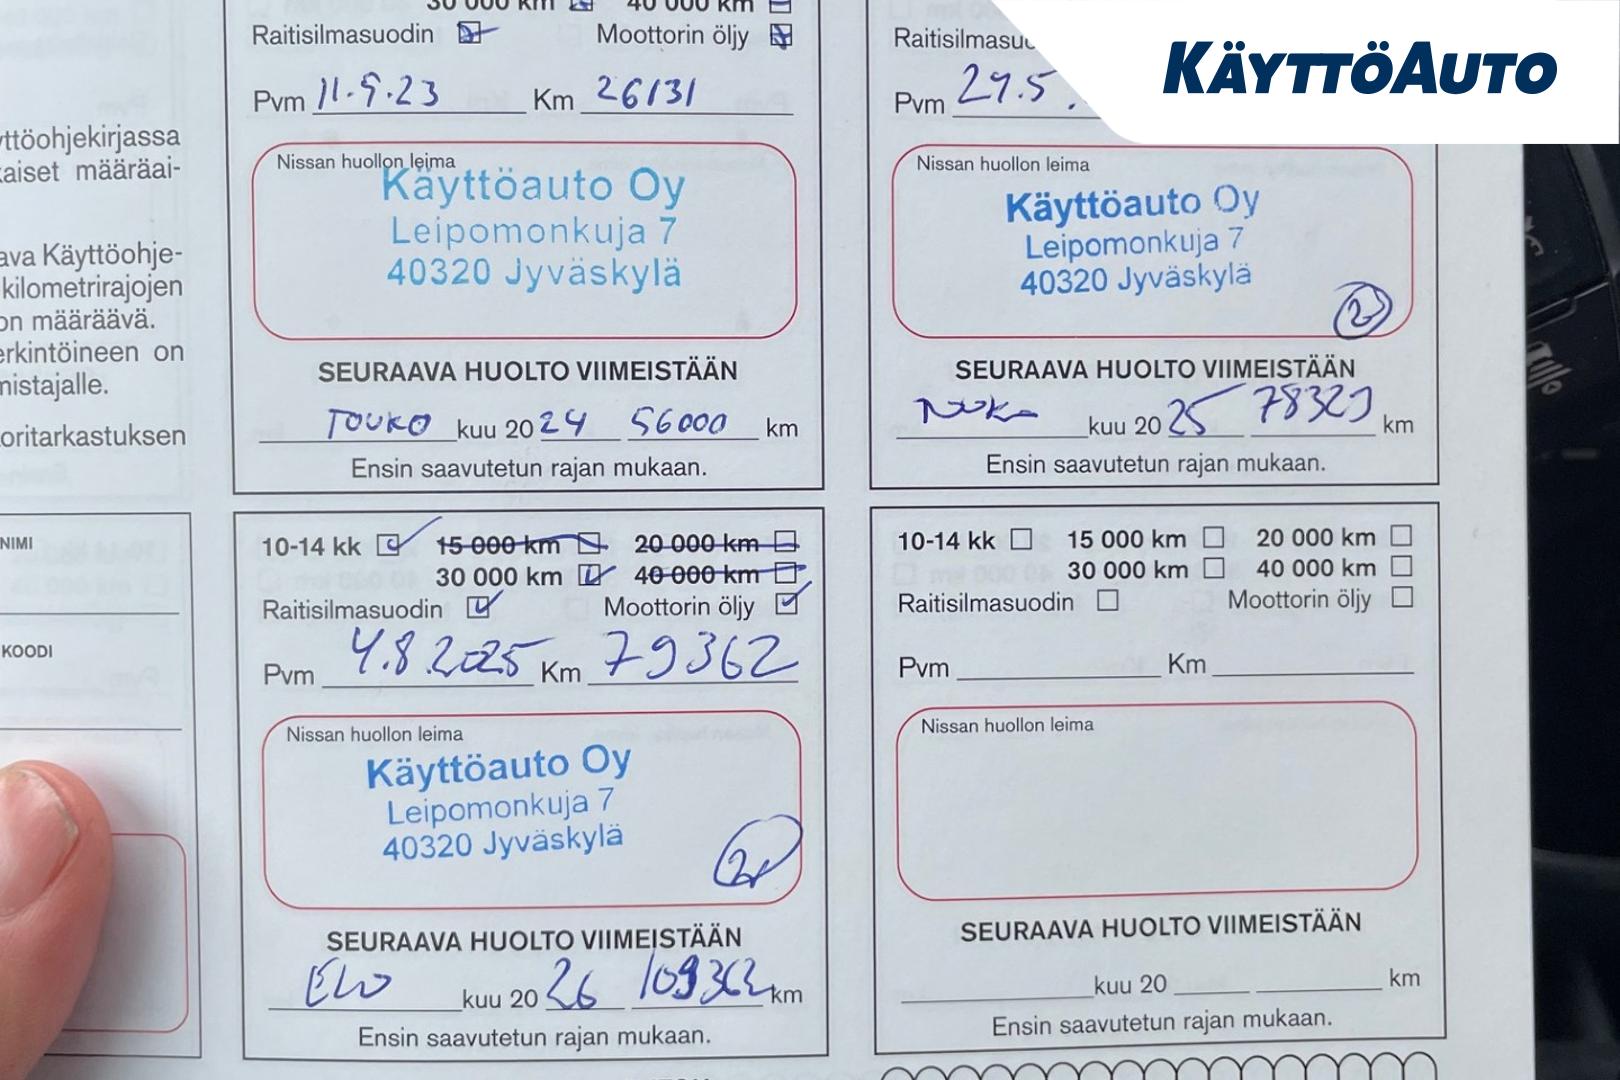 KÄYTTÖAUTO
30 000 km 40 000 km
Raitisilmasuodin Moottorin öljy
Pvm 11.9.23 Km 26131
Nissan huollon leima
Käyttöauto Oy
Leipomonkuja 7
40320 Jyväskylä
SEURAAVA HUOLTO VIIMEISTÄÄN
TOUKO kuu 2024 56000 km
Ensin saavutetun rajan mukaan.
Raitisilmasuo
Pvm 29.5.
Nissan huollon leima
Käyttöauto Oy
Leipomonkuja 7
40320 Jyväskylä
2
SEURAAVA HUOLTO VIIMEISTÄÄN
kuu 2025 78329 km
Ensin saavutetun rajan mukaan.
yttöohjekirjassa
kaiset määräai-
ava Käyttöohje-
kilometrirajojen
on määräävä.
erkintöineen on
mistajalle.
oritarkastuksen
NIMI
KOODI
10-14 kk 15 000 km 20 000 km
30 000 km 40 000 km
Raitisilmasuodin Moottorin öljy
Pvm 4.8.2025 Km 79362
Nissan huollon leima
Käyttöauto Oy
Leipomonkuja 7
40320 Jyväskylä
SEURAAVA HUOLTO VIIMEISTÄÄN
ELO kuu 2026 109362 km
Ensin saavutetun rajan mukaan.
10-14 kk 15 000 km 20 000 km
30 000 km 40 000 km
Raitisilmasuodin Moottorin öljy
Pvm Km
Nissan huollon leima
SEURAAVA HUOLTO VIIMEISTÄÄN
kuu 20 km
Ensin saavutetun rajan mukaan.